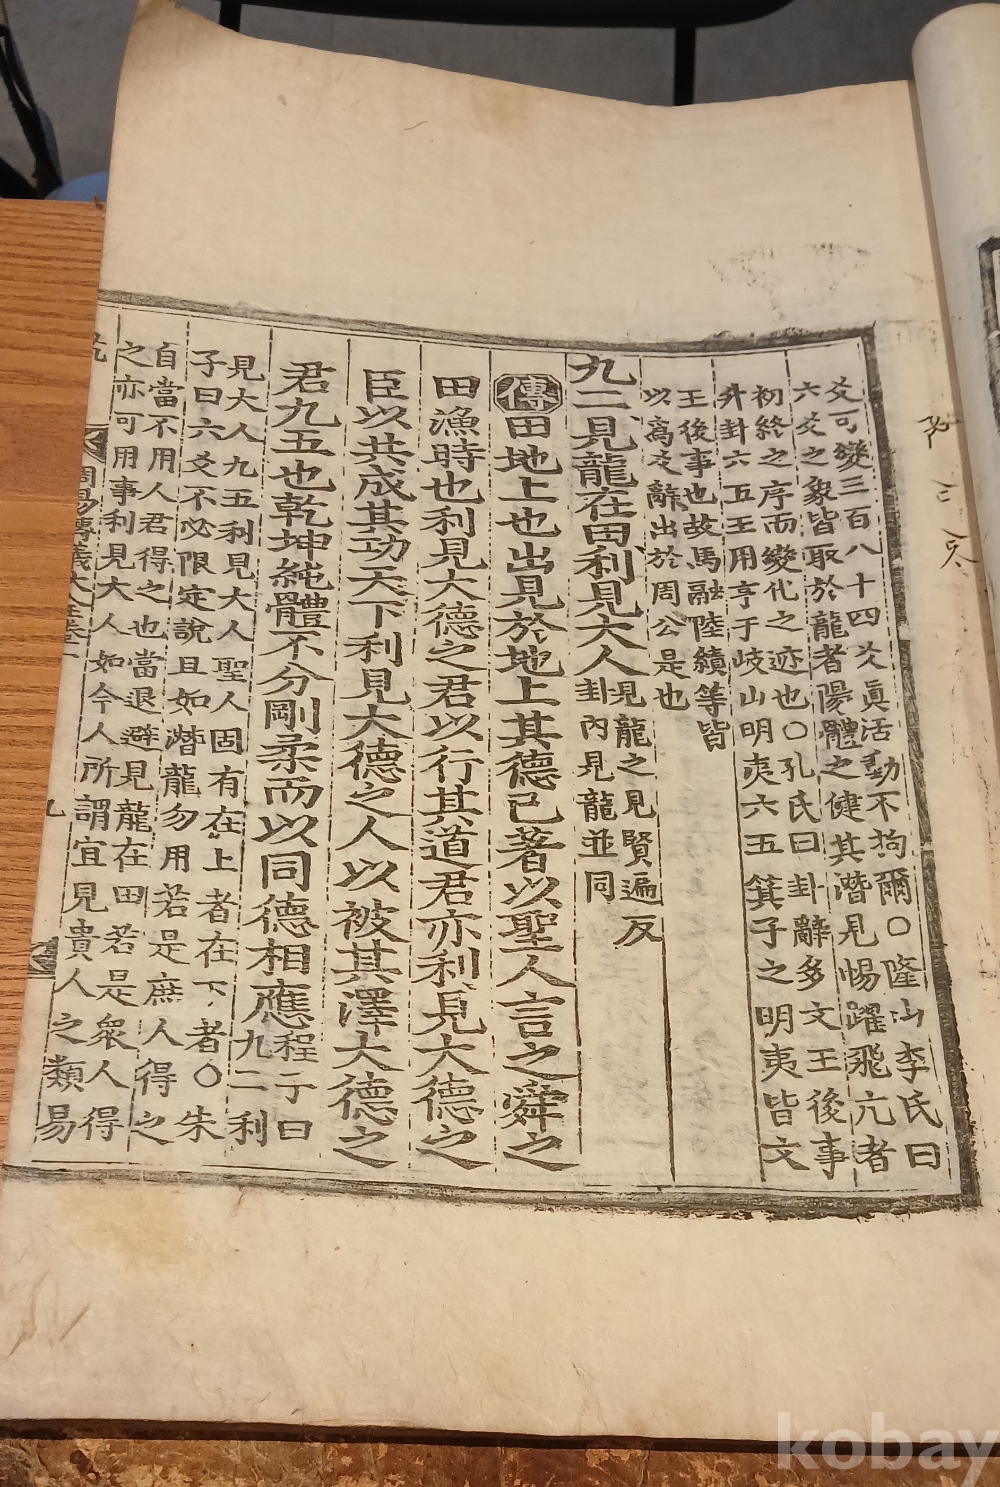 爻可變三百八十四爻眞活動不拘爾○隆山李氏曰
六爻之象皆取於龍者陽體之健其潛見惕躍飛亢者
初終之序而變化之迹也○孔氏曰卦辭多文王後事
升卦六五王用亨于岐山明夷六五箕子之明夷皆文
王後事也故馬融陸績等皆
以爲爻辭出於周公是也
九二見龍在田利見大人
見龍之見賢遍反
卦內見龍並同
傳田地上也出見於地上其德已著以聖人言之舜之
田漁時也利見大德之君以行其道君亦利見大德之
臣以共成其功天下利見大德之人以被其澤大德之
君九五也乾坤純體不分剛柔而以同德相應
程子曰
九二利
見大人九五利見大人聖人固有在上者在下者○朱
子曰六爻不必限定說且如潛龍勿用若是庶人得之
自當不用人君得之也當退避見龍在田若是衆人得
之亦可用事利見大人如今人所謂宜見貴人之類易
周易傳義大全卷一
九
kobay